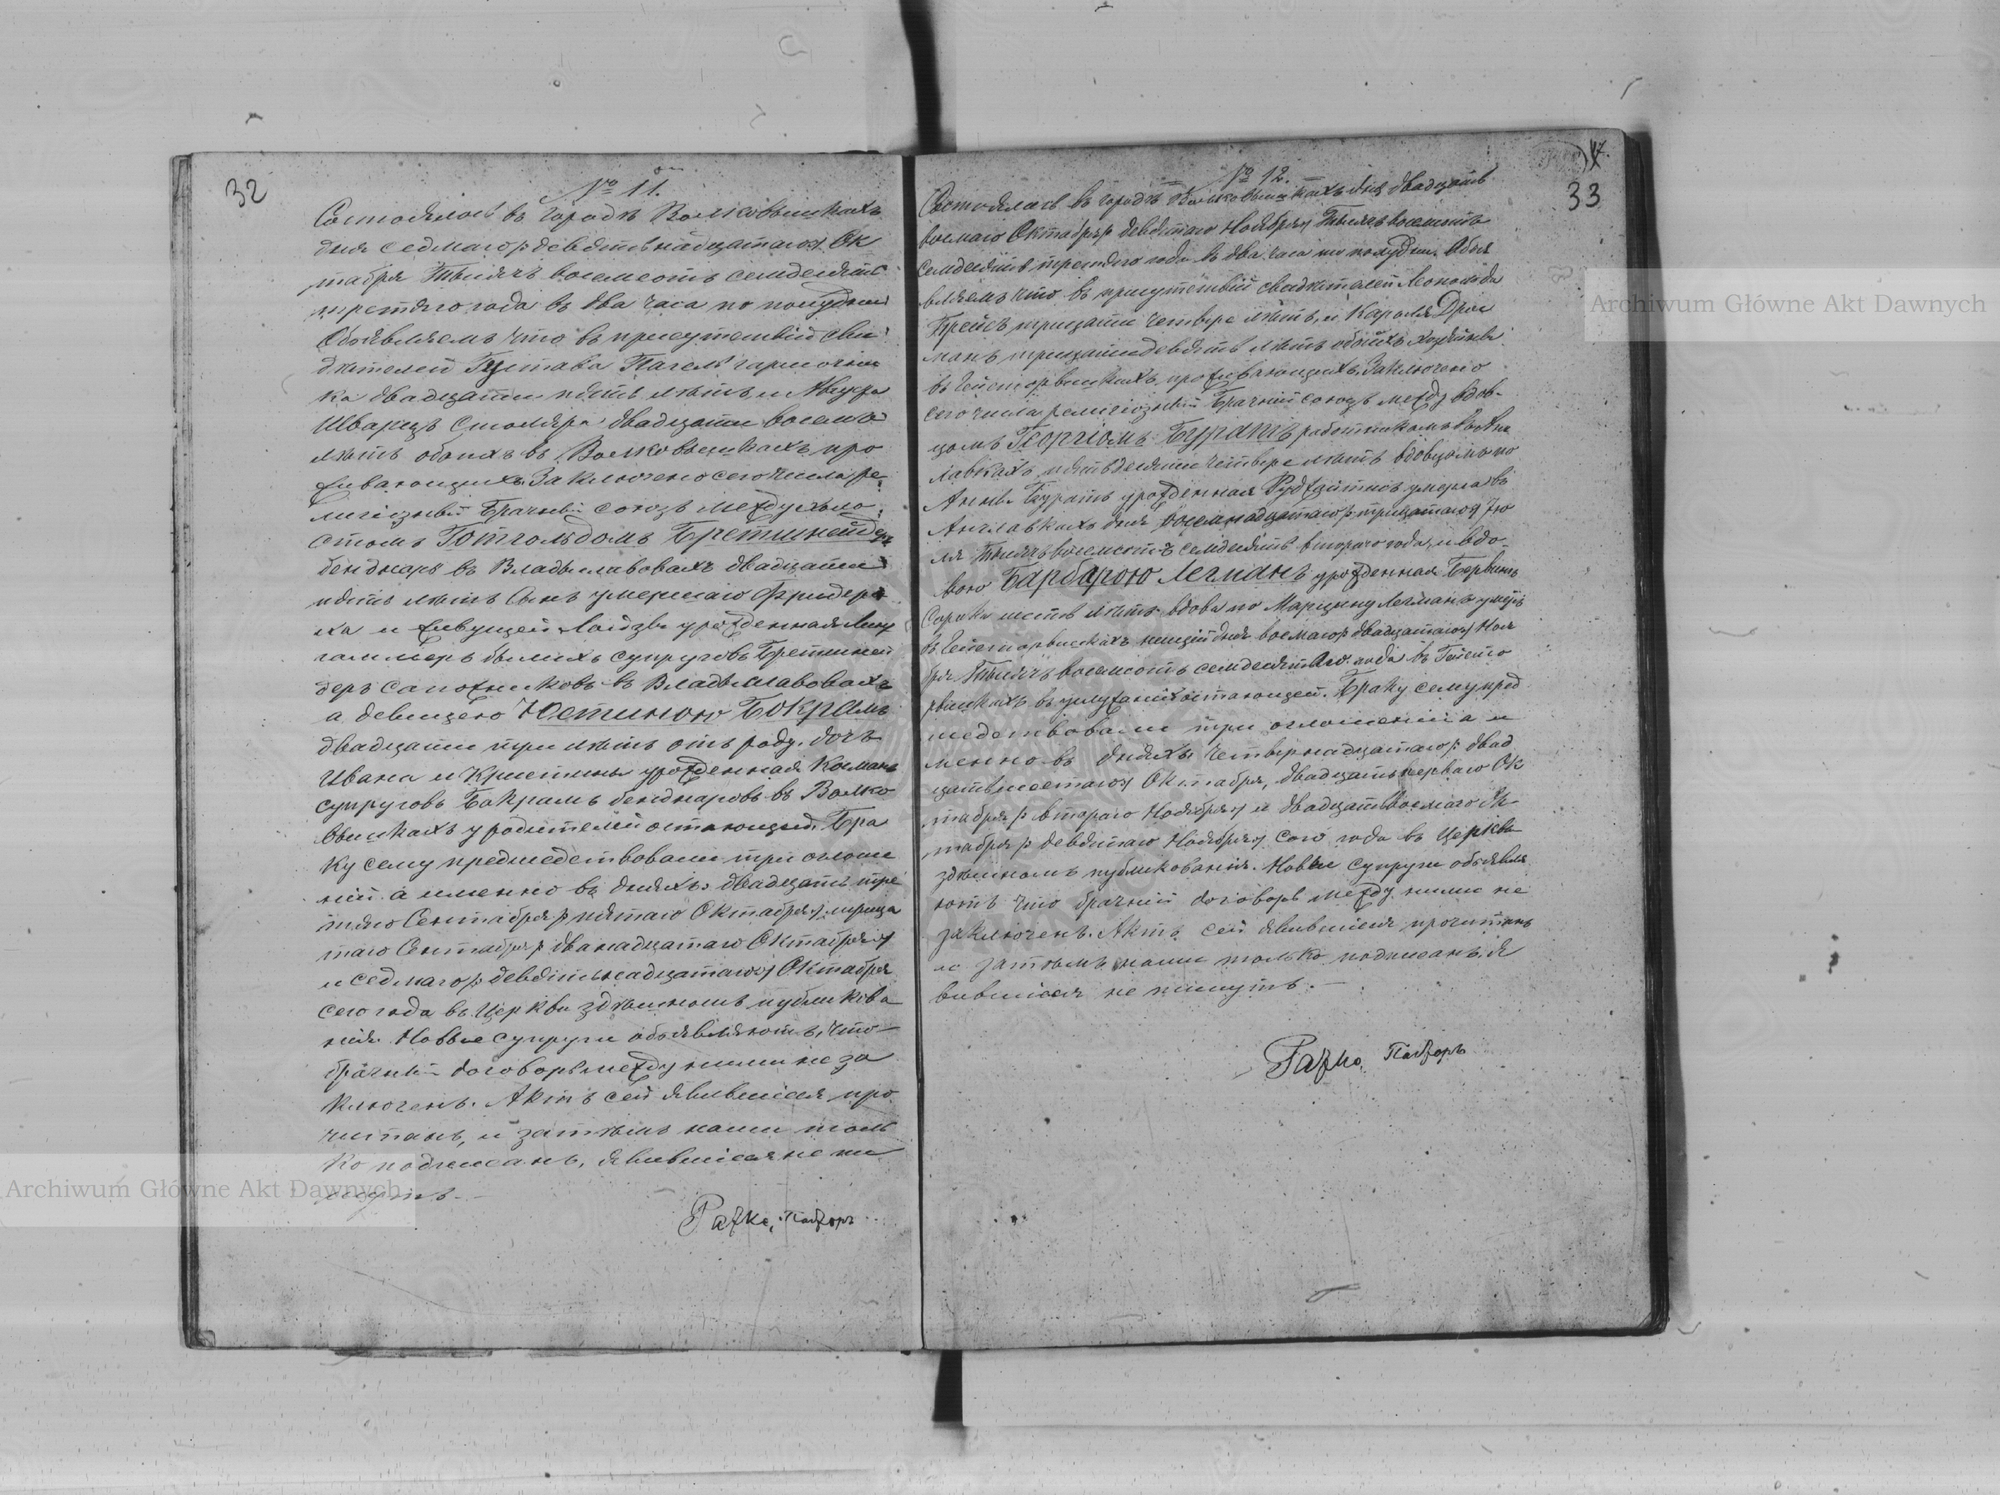 32
№ 11.
Состоялось въ городѣ Волковышкахъ
дня седмаго р девятьнадцатаго) Ок
табря Тысяча восемсотъ семдесятъ
третяго года въ два часа по полудни
Объявляемъ что въ присутствіи сви
дѣтелей Густава Пагель
ка двадцати пять лѣтъ и Августа
Шварцъ Столяра двадцати восемъ
лѣтъ обоихъ въ Волковышкахъ про
живающихъ. Заключено сего числа ре
лигіозный брачный союзъ между холо
стомъ Готгольдомъ Бретшнейдеръ
беднарь въ Владыславовахъ двадцати
пять лѣтъ Сынъ умершаго Фридери
ха и живущей Луизы урожденная
гаммеръ бывшихъ супруговъ Бретшней
деръ сапожниковъ въ Владыславовахъ
а девицею Юстиною Бокрамъ
двадцати три лѣтъ отъ роду, дочь
Ивана и Кристины урожденная
супруговъ Бокрамъ беднаровъ въ Волко
вышкахъ у родителей остающей. Бра
ку сему предшедствовали три оглоше
ній а именно въ дняхъ: двадцать тре
тяго Сентября р пятаго Октабря) трица
таго Сентабря р дванадцатаго Октабря)
и седмаго р девятьнадцатаго) Октабря
сего года въ Церкви здѣшномъ публикова
нія. Новые супруги объявляютъ, что
брачный договоръ между ними не за
ключенъ. Актъ сей явившіеся про
читанъ, и затѣмъ нами толь
ко подписанъ, явившіеся не пи
шутъ.
Разке, Пасторъ
33
№ 12.
Состоялась въ городѣ Волковышкахъ дня двадцать
восмаго Октабря р девятаго Ноября) Тысяча восемсотъ
семдесятъ третяго года въ два часа по полудни. Объя
вляемъ что въ присутствіи свидѣтелей Леопольда
Брейсъ трицати четыре лѣтъ, и Кароля
манъ трицати девять лѣтъ обоихъ хозяиновъ
въ проживающихъ, Заключено
сего числа религіозный брачный союзъ между вдов-
цомъ Георгіомъ Буратъ работникомъ въ Анг
лавкахъ пятьдесяти четыре лѣтъ вдовцомъ по
Анны Буратъ урожденная умерла въ
Англавкахъ дня восемнадцатаго р трицатаго) Ію
ля Тысяча восемсотъ семдесятъ втораго года, и вдо-
вою Барбарою Легманъ урожденная
Сорока шесть лѣтъ вдова по Марцину Легманъ умеръ
въ дня восмаго р двадцатаго) Ноя
бря Тысяча восемсотъ семдесятаго года въ
въ остающей. Браку сему пред
шедствовали три оглошенія и
менно въ дняхъ: четырнадцатаго р двад
цатьшестаго) Октабря, двадцатьперваго Ок
табря р втораго Ноября) и двадцатьвосмаго Ок
табря р девятаго Ноября) сего года въ Церкви
здѣшномъ публикованія. Новые супруги объявля
ютъ что брачный договоръ между ними не
заключенъ. Актъ сей явившіеся прочитанъ
и затѣмъ нами только подписанъ, я
вившіеся не пишутъ. —
Разке, Пасторъ
Archiwum Główne Akt Dawnych
Archiwum Główne Akt Dawnych